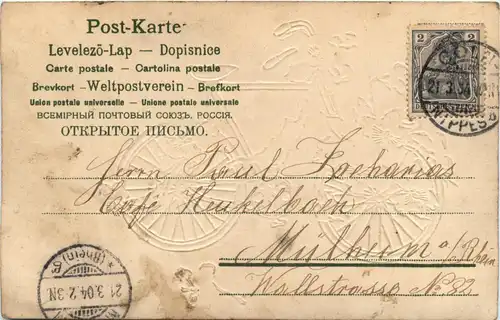 Post-Karte
Levelező-Lap — Dopisnice
Carte postale — Cartolina postale
Brevkort - Weltpostverein - Brefkort
Union postale universelle — Unione postale universale
ВСЕМІРНЫЙ ПОЧТОВЫЙ СОЮЗЪ. РОССІЯ.
ОТКРЫТОЕ ПИСЬМО.
2 2
21.3.04
NIPPES
Herrn Paul Zacharias
Café Henkelbach
Mülheim a/Rhein
Wallstrasse No 82
(Rhein)
21.3.04.2.3N